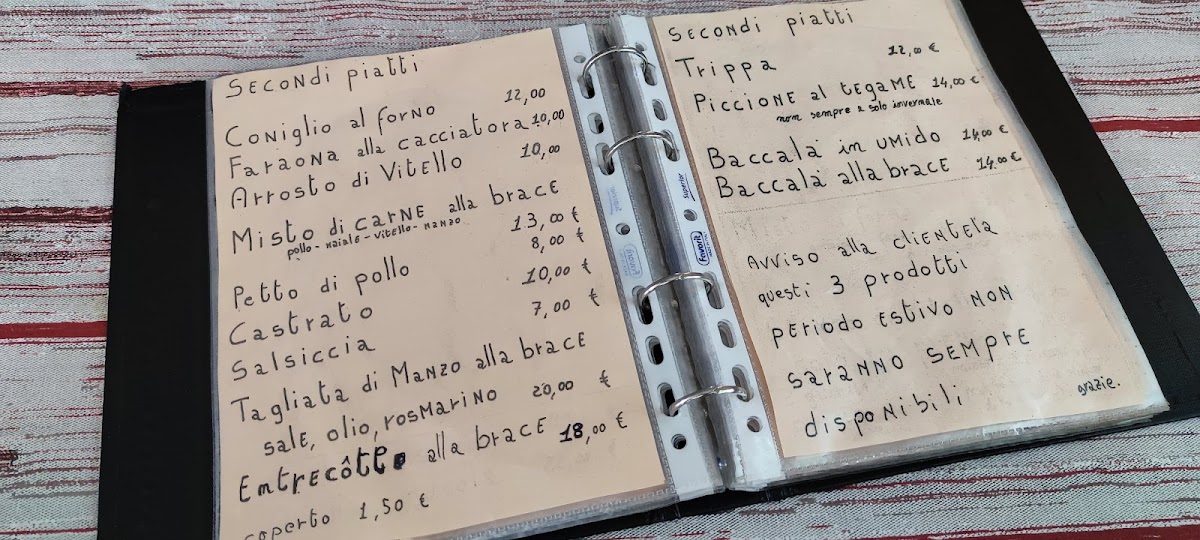 SECONDI PIATTI
CONIGLIO al FORNO 12,00
FARAONA alla CACCIATORA 10,00
ARROSTO di VITELLO 10,00
MISTO di CARNE alla BRACE
pollo - maiale - vitello - manzo 13,00 €
PETTO di pollo 8,00 €
CASTRATO 10,00 €
SALSICCIA 7,00 €
TAGLIATA di MANZO alla BRACE
SALE, OLIO, ROSMARINO 20,00 €
ENTRECÔTE alla BRACE 18,00 €
coperto 1,50 €
SECONDI PIATTI
TRIPPA 12,00 €
PICCIONE al TEGAME 14,00 €
non sempre e solo invernale
BACCALA' in UMIDO 14,00 €
BACCALA' alla BRACE 14,00 €
AVVISO alla CLIENTELA
questi 3 prodotti
PERIODO ESTIVO NON
SARANNO SEMPRE
disponibili
grazie.
Favorit
Superior